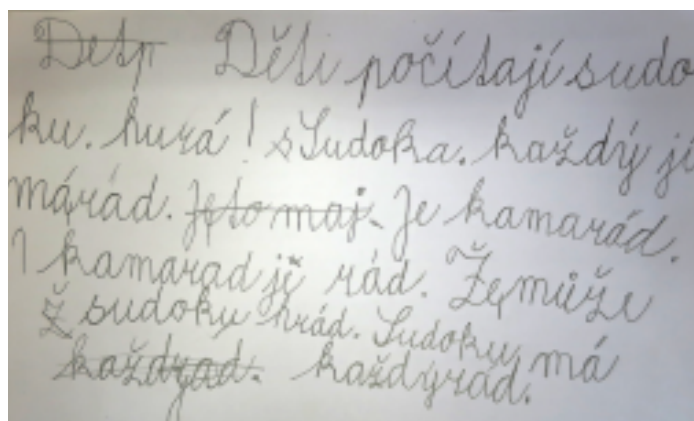 Děti počítají sudo
ku. hurá! Sudoka. každý jí
má rád. Je kamarád.
I kamarad je rád. Že může
sudoku hrád. Sudoku má
každý rád.